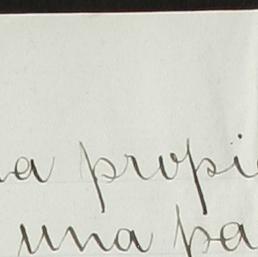 a propi
una pa